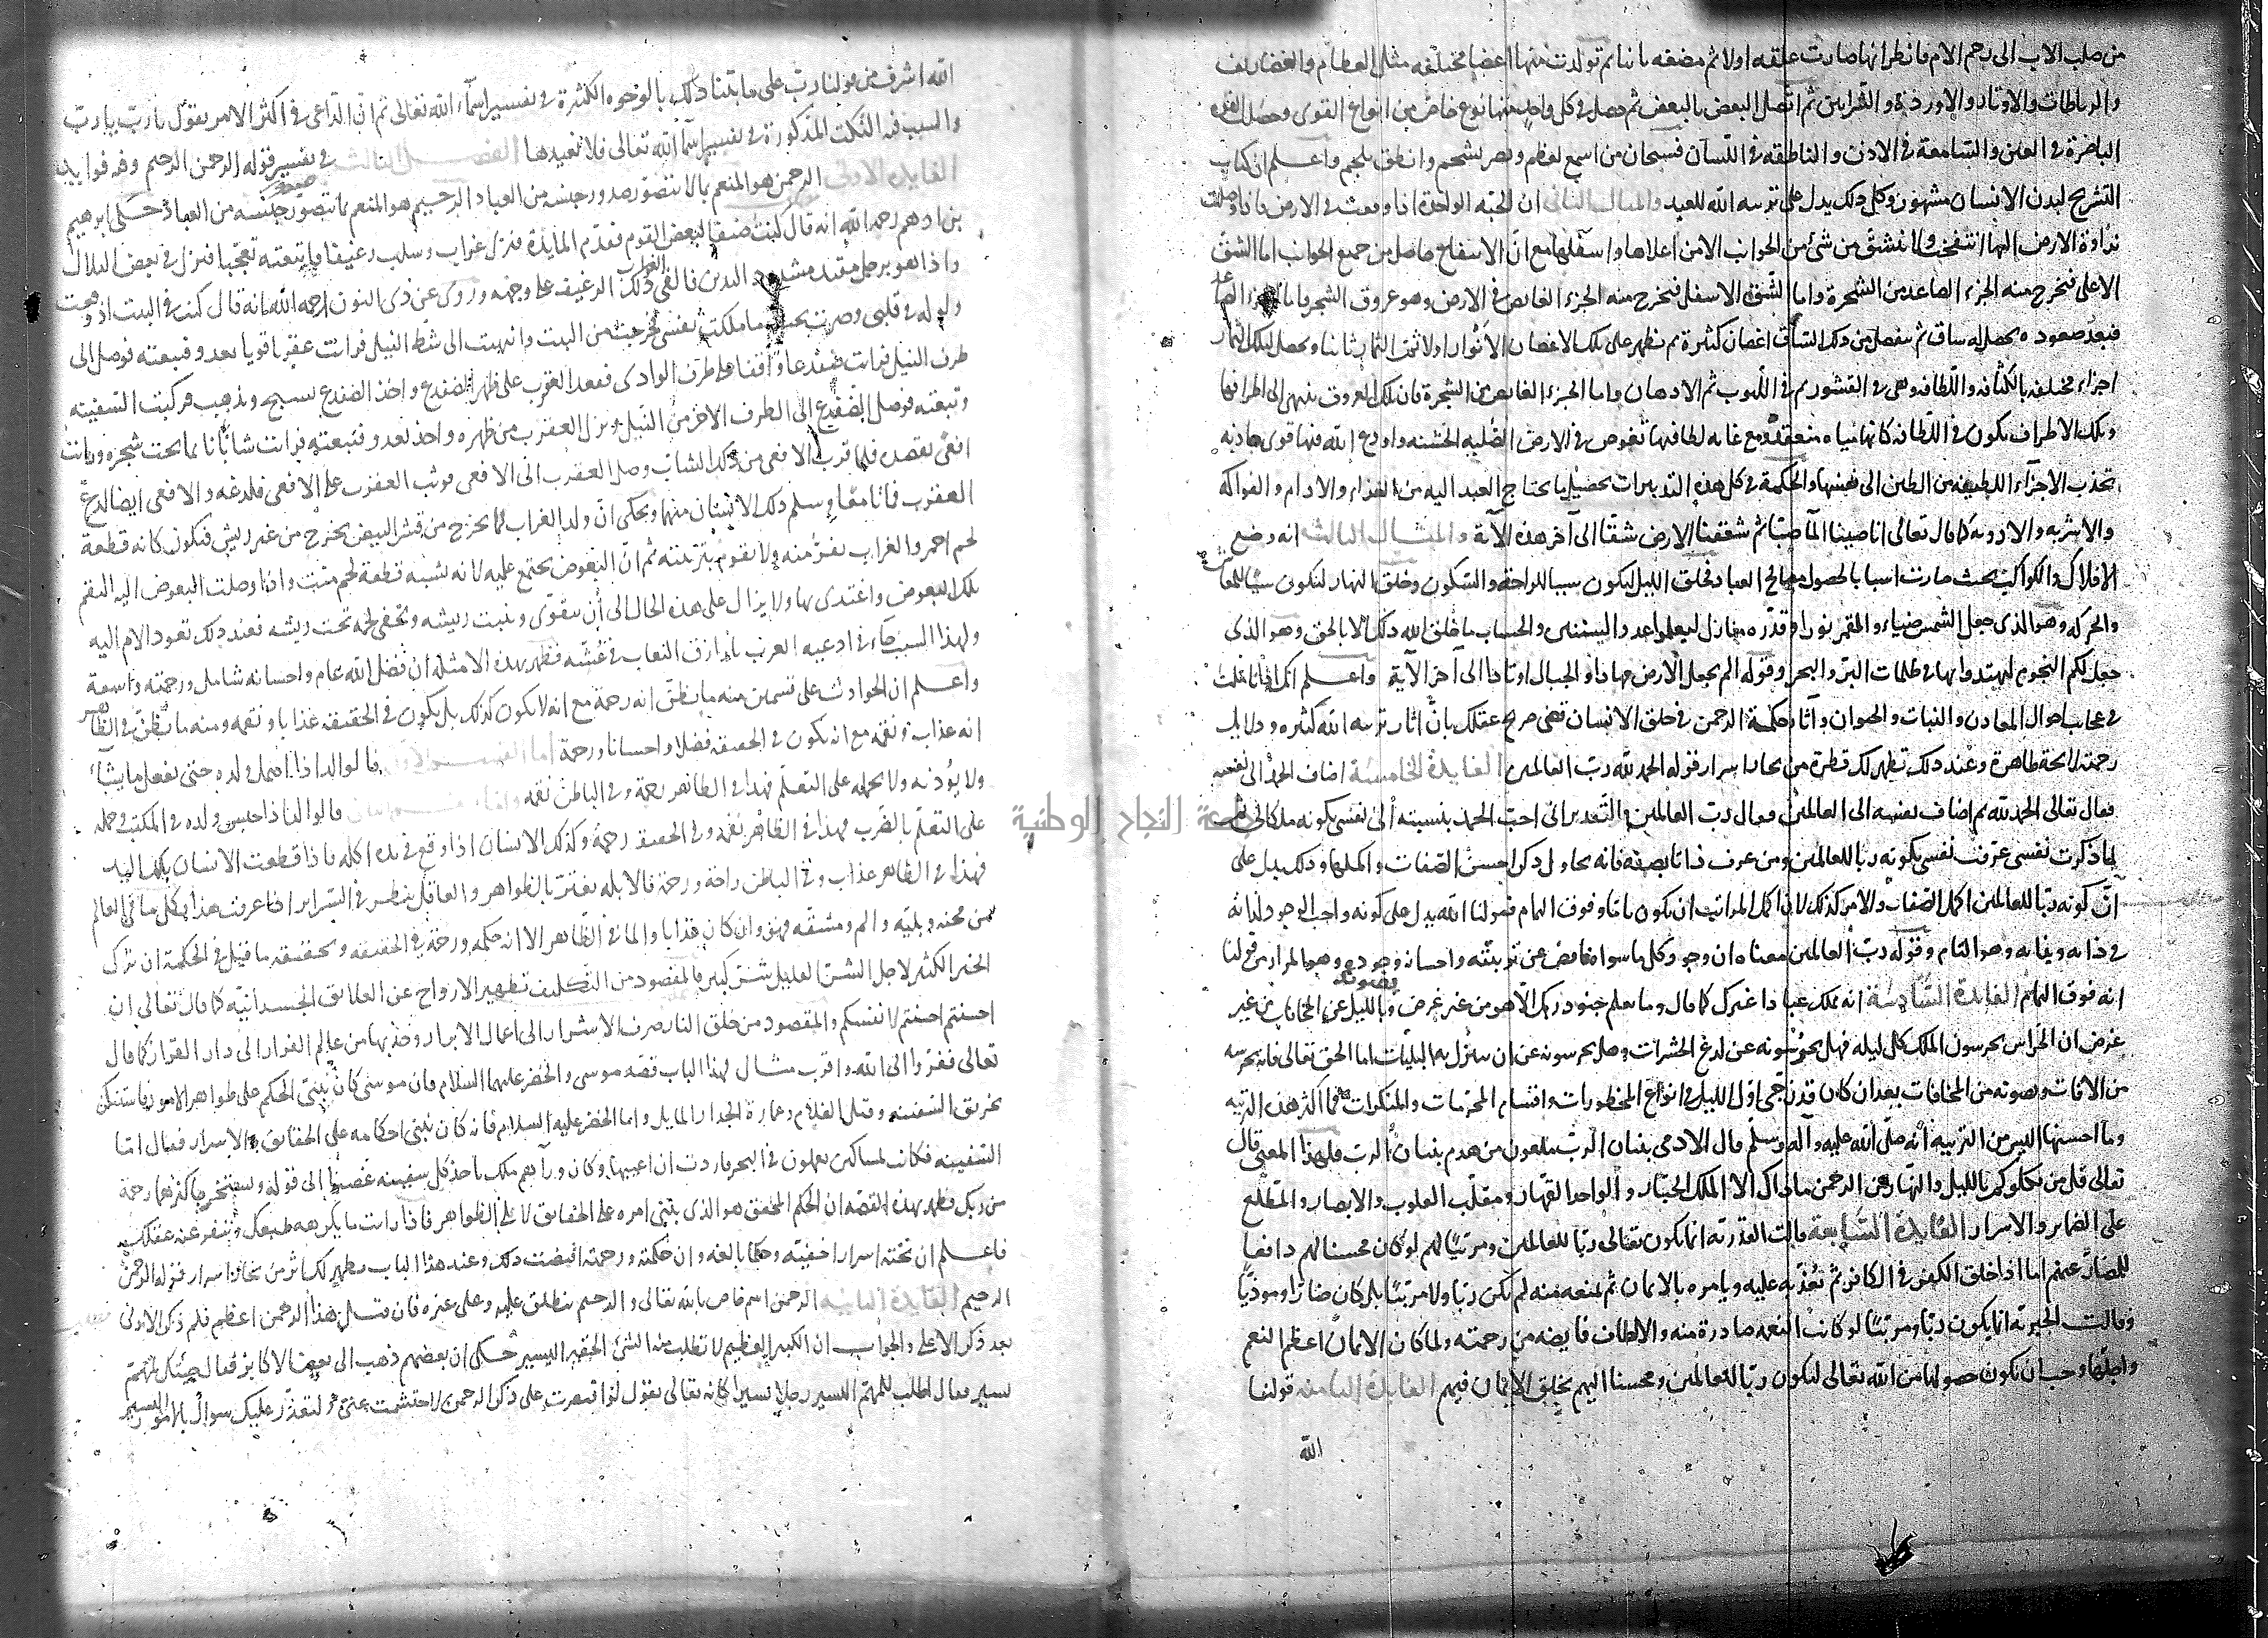 من صلب الاب الى رحم الام فانظر انها صارت علقه اولا ثم مضغه ثانيا ثم تولدت منها اعضا مختلفه مثل العظام والغضاريف
والرباطات والاوتار والاوردة والشرايين ثم اتصل البعض بالبعض ثم حصل في كل واحد منها نوع خاص من انواع القوى وحصل القوة
الباصرة في العين والسامعة في الاذن والناطقه في اللسان فسبحان من اسمع بعظم وبصر بشحم وانطق بلحم واعلم ان كتاب
التشريح لبدن الانسان مشهور وكل ذلك يدل على تربيه الله للعبد والمثال الثاني ان الحبه الواحدة اذا وقعت في الارض فاذا وصلت
نداوة الارض اليها انتفخت ولا تنشق من شئ من الجوانب الا من اعلاها واسفلها مع ان الانتفاخ حاصل من جميع الجوانب اما الشق
الاعلى فيخرج منه الجزء الصاعد من الشجرة واما الشق الاسفل فيخرج منه الجزء الغايص في الارض وهو عروق الشجر فاما الجزء الصاعد
فبعد صعوده يحصل له ساق ثم ينفصل من ذلك الساق اغصان كثيرة ثم يظهر على تلك الاغصان الانوار اولا ثم الثمار ثانيا ويحصل لتلك الثمار
اجزاء مختلفه بالكثافه واللطافه وهي في القشور ثم في اللبوب ثم الادهان واما الجزء الغايص من الشجرة فان تلك العروق ينتهي الى اطرافها
وتلك الاطراف تكون في اللطافه كانها مياه منعقدة ومع غايه لطافتها تغوص في الارض الصلبه الخشنه واودع الله فيها قوى جاذبه
تجذب الاجزاء اللطيفه من الطين الى نفسها والحكمة في كل هذه التدبيرات تحصيل ما يحتاج العبد اليه من الغذاء والادام والفواكه
والاشربه والادويه كما قال تعالى انا صببنا الما صبا ثم شققنا الارض شقا الى آخر هذه الآية والمثال الثالث انه وضع
الافلاك والكواكب بحيث صارت اسبابا لحصول مصالح العباد فخلق الليل ليكون سببا للراحة والسكون وخلق النهار ليكون سببا للمعاش
والحركه وهو الذي جعل الشمس ضياء والقمر نورا وقدره منازل ليعلموا عدد السنين والحساب ما خلق الله ذلك الا بالحق وهو الذي
جعل لكم النجوم لتهتدوا بها في ظلمات البر والبحر وقوله الم يجعل الارض مهادا والجبال اوتادا الى آخر الآية واعلم انك اذا تاملت
في عجايب احوال المعادن والنبات والحيوان وآثار حكمة الرحمن في خلق الانسان قضى صريح عقلك بان آثار تربيه الله كثيره ودلايل
رحمته لايحة ظاهرة وعند ذلك تظهر لك قطرة من بحار اسرار قوله الحمد لله رب العالمين الفايدة الخامسة اضاف الحمد الى نفسه
فقال تعالى الحمد لله ثم اضاف نفسه الى العالمين فقال رب العالمين والتقدير انى احب الحمد بنسبته الى نفسى بكونه ملكا لى ثم
لما ذكرت نفسى عرفت نفسى بكونه ربا للعالمين ومن عرف ذاتا بصفة فانه يحاول ذكر احسن الصفات واكملها وذلك يدل على
ان كونه ربا للعالمين اكمل الصفات والامر كذلك لان اكمل المراتب ان يكون تاما وفوق التمام فقولنا الله يدل على كونه واجب الوجود لذاته
في ذاته وبذاته وهو التام وقوله رب العالمين معناه ان وجود كل ما سواه فايض عن تربيته واحسانه وجوده وهو المراد من قولنا
انه فوق التمام الفايدة السادسة انه يملك عبادا غيرك كما قال وما يعلم جنود ربك الا هو من غير غرض وبالليل عن المخافات من غير
غرض ان الحراس يحرسون الملك كل ليله فهل يحرسونه عن لدغ الحشرات وهل يحرسونه عن ان ينزل به البليات اما الحق تعالى فانه يحرسه
من الافات ويصونه من المخافات بعد ان كان قد زجى اول الليل في انواع المحظورات واقسام المحرمات والمنكرات فما اكثر هذه التربيه
وما احسنها اليس من التربيه انه صلى الله عليه وآله وسلم قال الادمى بنيان الرب ملعون من هدم بنيان الرب فلهذا المعنى قال
تعالى قل من يكلوكم بالليل والنهار من الرحمن ما ذاك الا الملك الجبار والواحد القهار ومقلب القلوب والابصار والمطلع
على الضماير والاسرار الفايدة السابعة قالت القدرته انما يكون تعالى ربا للعالمين ومربيا لهم لو كان محسنا لهم دافعا
للمضار عنهم اما اذا خلق الكفر في الكافر ثم يعذبه عليه ويامره بالايمان ثم يمنعه منه لم يكن ربا ولا مربيا بل كان ضارا وموذيا
وقالت الجبريه انما يكون ربا ومربيا لو كانت النعمه صادرة منه والالطاف فايضه من رحمته ولما كان الايمان اعظم النعم
واجلها وجب ان يكون حصولها من الله تعالى ليكون ربا للعالمين ومحسنا اليهم بخلق الايمان فيهم الفايدة الثامنه قولنا
الله
الله اشرف من قولنا رب على ما بينا ذلك بالوجوه الكثيرة في تفسير اسماء الله تعالى ثم ان الداعى في اكثر الامر يقول يا رب يا رب
والسبب فيه النكت المذكورة في تفسير اسما الله تعالى فلا نعيدها الفصل الثالث في تفسير قوله الرحمن الرحيم وفيه فوايد
الفايدة الاولى الرحمن هو المنعم بما لا يتصور صدور جنسه من العباد الرحيم هو المنعم بما يتصور جنسه من العباد حكى ابرهيم
بن ادهم رحمه الله انه قال كنت ضيفا لبعض القوم فقدم المايدة فنزل غراب وسلب رغيفا فاتبعته تعجبا فنزل في بعض التلال
واذا هو برجل مقيد مشدود اليدين فالقى ذلك الغراب الرغيف على وجهه وروى عن ذى النون رحمه الله انه قال كنت في البيت اذ وقعت
ولوله في قلبى وصرت بحيث ما ملكت نفسى فخرجت من البيت وانهيت الى شط النيل فرايت عقربا قويا يعدو فتبعته فوصل الى
طرف النيل فرايت ضفدعا واقفا على طرف الوادى فقعد العقرب على ظهر الضفدع واخذ الضفدع يسبح ويذهب فركبت السفينه
وتبعته فوصل الضفدع الى الطرف الاخر من النيل ونزل العقرب من ظهره واخذ يعدو فتبعته فرايت شابا نايما تحت شجرة ورايت
افعى يقصده فلما قرب الافعى من ذلك الشاب وصل العقرب الى الافعى فوثب العقرب على الافعى فلدغه والافعى ايضا لدغ
العقرب فماتا معا وسلم ذلك الانسان منهما ويحكى ان ولد الغراب لما يخرج من قشر البيض يخرج من غير ريش فيكون كانه قطعة
لحم احمر والغراب يفر منه ولا يقوم بتربيته ثم ان البعوض يجتمع عليه لانه يشبه قطعة لحم ميت واذا وصلت البعوض اليه التقم
تلك البعوض واغتدى بها ولا يزال على هذه الحال الى ان يتقوى وينبت ريشه ويخفى لحمه تحت ريشه فعند ذلك تعود الام اليه
ولهذا السبب جاء في ادعيه العرب يا رازق النعاب في عشه فظهر بهذه الامثله ان فضل الله عام واحسانه شامل ورحمته واسعة
واعلم ان الحوادث على قسمين منه ما يظن انه رحمة مع انه لا يكون كذلك بل يكون في الحقيقه عذابا ونقمه ومنه ما يظن في الظاهر
انه عذاب ونقمه مع انه يكون في الحقيقه فضلا واحسانا ورحمة اما القسم الاول فالوالد اذا اهمل ولده حتى يفعل ما يشاء
ولا يؤدبه ولا يحمله على التعلم فهذا في الظاهر رحمة وفي الباطن نقمه واما القسم الثانى فالوالد اذا حبس ولده في المكتب وحمله
على التعلم بالضرب فهذا في الظاهر نقمة وفي الحقيقه رحمة وكذلك الانسان اذا وقع في يده اكله فاذا قطعت الانسان تلك اليد
فهذا في الظاهر عذاب وفي الباطن راحة ورحمة فالابله يغتر بالظواهر والعاقل ينظر في السراير اذا عرفت هذا فكل ما في العالم
من محنه وبليه والم ومشقه فهو وان كان عذابا والما في الظاهر الا انه حكمه ورحمة في الحقيقه وتحقيقه ما قيل في الحكمة ان ترك
الخير الكثير لاجل الشر القليل شر كبير فالمقصود من التكليف تطهير الارواح عن العلايق الجسدانيه كما قال تعالى ان
احسنتم احسنتم لانفسكم والمقصود من خلق النار صرف الاشرار الى اعمال الابرار وجذبها من عالم الفرار الى دار القرار كما قال
تعالى ففروا الى الله واقرب مثال لهذا الباب قصه موسى والخضر عليهما السلام فان موسى كان يبنى الحكم على ظواهر الامور فاستنكر
تخريق السفينه وقتل الغلام وعمارة الجدار المايل واما الخضر عليه السلام فانه كان يبنى احكامه على الحقايق والاسرار فقال اما
السفينه فكانت لمساكين يعملون في البحر فاردت ان اعيبها وكان ورآهم ملك ياخذ كل سفينه غصبا الى قوله ويستخرجا كنزهما رحمة
من ربك فظهر بهذه القصه ان الحكيم المحقق هو الذي يبنى امره على الحقايق لا على الظواهر فاذا رايت ما يكرهه طبعك وينفر عنه عقلك
فاعلم ان تحته اسرارا خفيه وحكما بالغه وان حكمته ورحمته اقتضت ذلك وعند هذا الباب يظهر لك اثر من بحار اسرار قوله الرحمن
الرحيم الفايدة الثانيه الرحمن اسم خاص بالله تعالى والرحيم ينطلق عليه وعلى غيره فان قيل هذا الرحمن اعظم فلم ذكر الادنى
بعد ذكر الاعلى والجواب ان الكبير العظيم لا تطلب منه الشئ الحقير اليسير حكى ان بعضهم ذهب الى بعض الاكابر فقال جيتك لمهم
يسير فقال اطلب للمهم اليسير رجلا يسيرا كانه تعالى يقول لو اقتصرت على ذكر الرحمن لاحتشمت عنى ولتعذر عليك سوال الامور اليسيرة
جامعة النجاح الوطنية